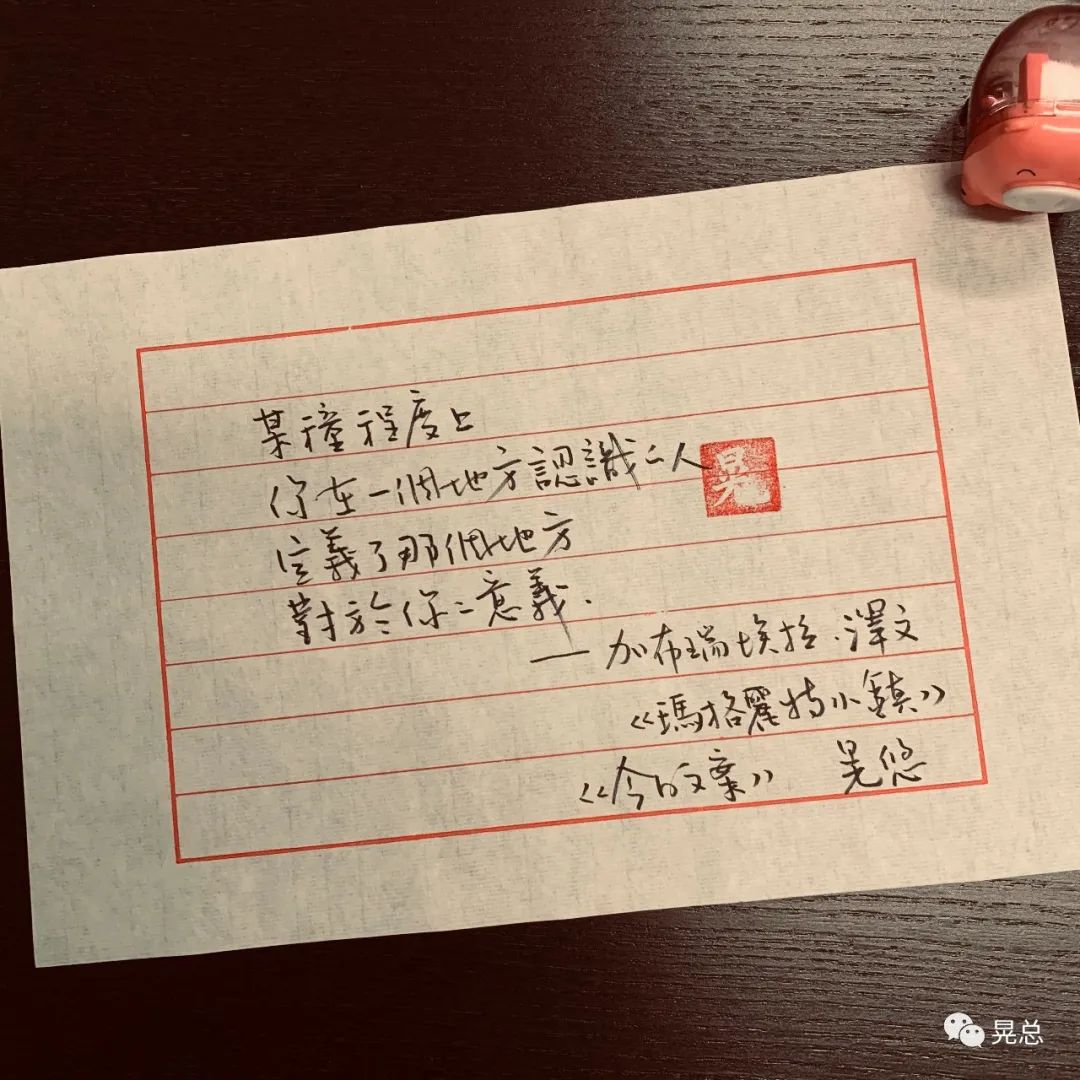 某種程度上
你在一個地方認識的人
晃
定義了那個地方
對於你的意義.
——加布瑞埃拉·澤文
《瑪格麗特小鎮》
《今日文案》 晃悠
晃总